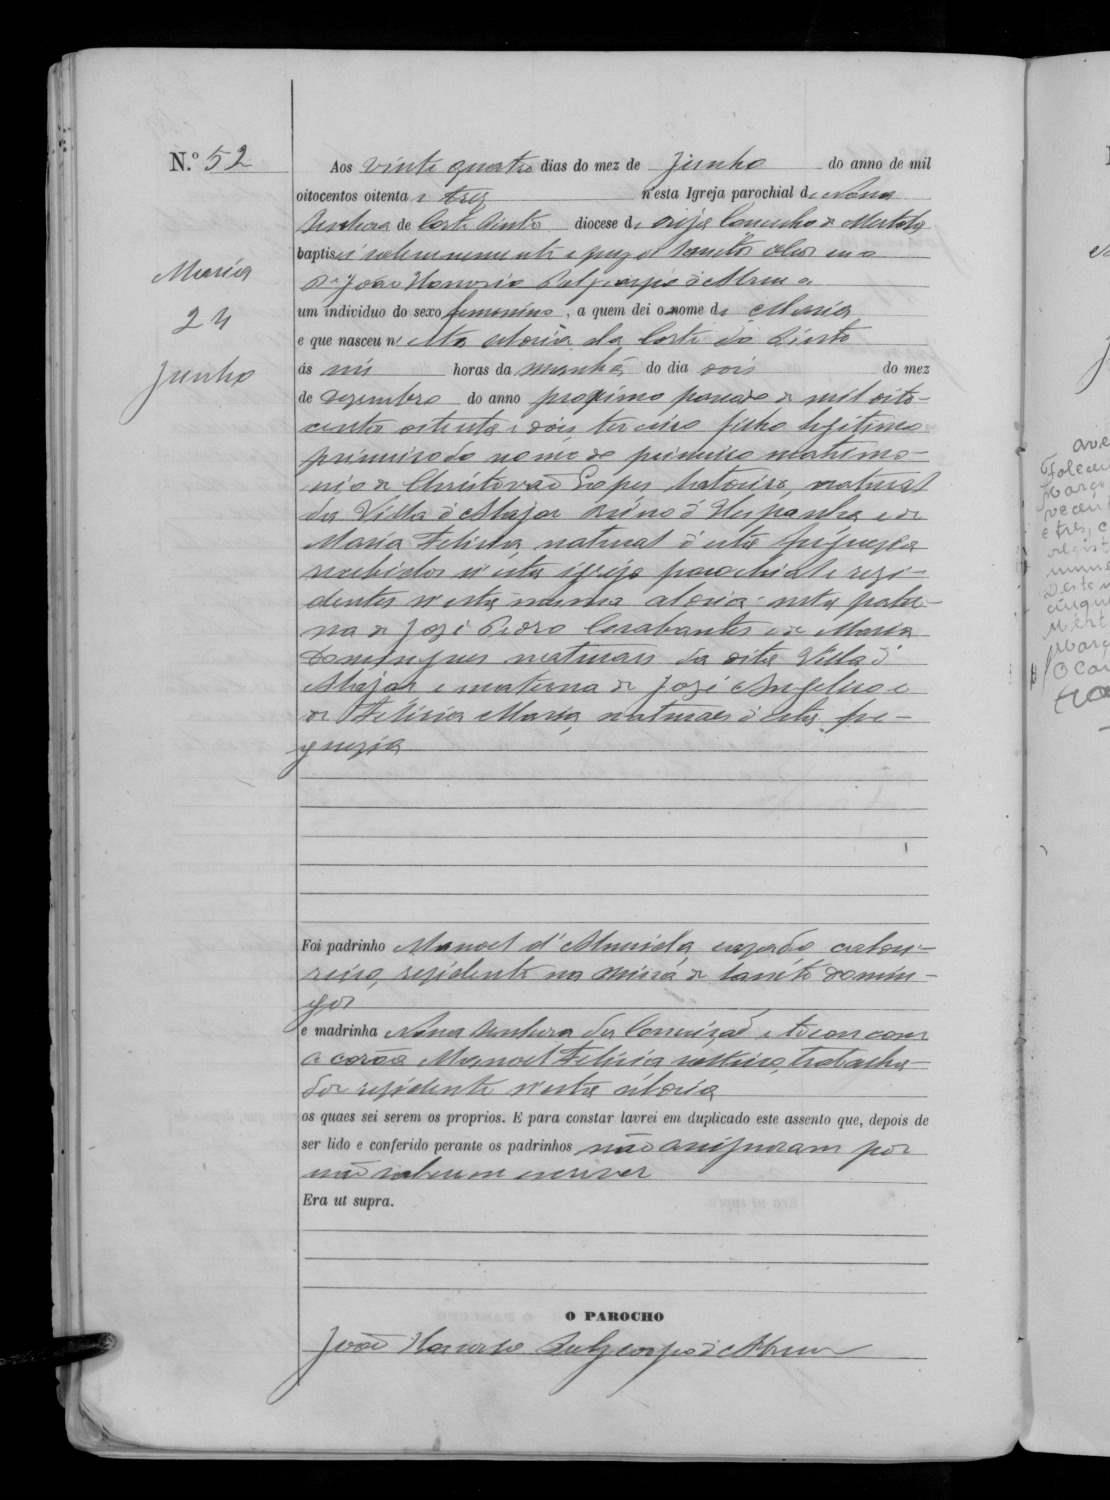 N.º 52
Maria
24
Junho
Aos vinte quatro dias do mez de Junho do anno de mil
oitocentos oitenta e tres n'esta Igreja parochial de Nossa
Senhora de Corte Pinto diocese de Beja Concelho de Mertola
baptisei solemnemente e puz os Santos oleos eu o
P.e João Honorio d'Abreu
um individuo do sexo femenino, a quem dei o nome de Maria
e que nasceu n'esta aldeia da Corte do Pinto
ás seis horas da manhã do dia dois do mez
de dezembro do anno proximo passado de mil oito-
centos oitenta e dois, terceiro filho legitimo
primeiro do nome de primeiro matrimo-
nio de Christovão Lopes natural
da Villa d' Reino d'Hespanha e de
Maria Felicia natural d'esta freguezia
recebidos n'esta igreja parochial e rezi-
dentes n'esta mesma aldeia: neta pater-
na de José Pedro e de Maria
Domingues naturaes da dita Villa d'
e materna de José Angelico e
de Felicia Maria, naturaes d'esta fre-
guezia
Foi padrinho Manoel d'Almeida cazado
rezidente na Mina de Sam Domin-
gos
e madrinha Nossa Senhora da Conceição e tocou com
a coroa Manoel Felicia solteiro, trabalha-
dor rezidente n'esta aldeia
os quaes sei serem os proprios. E para constar lavrei em duplicado este assento que, depois de
ser lido e conferido perante os padrinhos não assignaram por
não saberem escrever
Era ut supra.
O PAROCHO
João Honorio d'Abreu